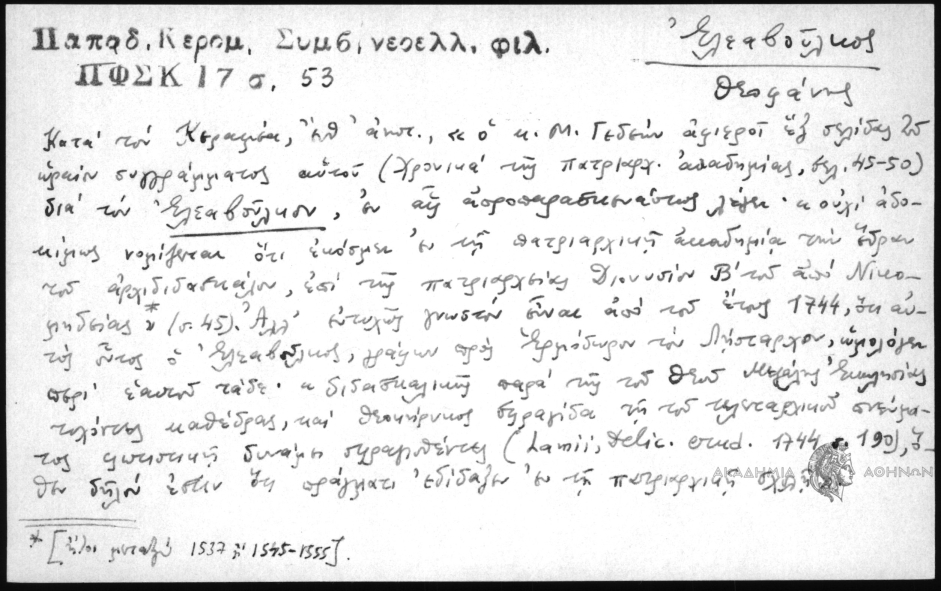 Παπαδ. Κεραμ. Συμβ. νεοελλ. φιλ.
ΠΦΣΚ 17 σ. 53
Ἐλεαβοῦλκος
Θεοφάνης
Κατὰ τὸν Κεραμέα, ἔνθ' ἀνωτ., « ὁ κ. Μ. Γεδεὼν ἀφιεροῖ ἓξ σελίδας τοῦ
ὡραίου συγγράμματος αὐτοῦ (Χρονικὰ τῆς πατριαρχ. ἀκαδημίας, σελ. 45-50)
διὰ τὸν Ἐλεαβοῦλκον, ἐν αἷς ἀπροπαρασκευάστως λέγει· « οὐχὶ ἀδο-
κίμως νομίζεται ὅτι ἐκόσμει ἐν τῇ πατριαρχικῇ ἀκαδημίᾳ τὴν ἕδραν
τοῦ ἀρχιδιδασκάλου, ἐπὶ τῆς πατριαρχείας Διονυσίου Β' τοῦ ἀπὸ Νικο-
μηδείας * (σ. 45). Ἀλλ' εὐτυχῶς γνωστὸν εἶναι ἀπὸ τοῦ ἔτους 1744, ὅτι αὐ-
τὸς οὗτος ὁ Ἐλεαβοῦλκος, γράφων πρὸς Ἑρμόδωρον τὸν Λήσταρχον, ὡμολόγει
περὶ ἑαυτοῦ τάδε· « διδασκαλικῆς παρὰ τῆς τοῦ Θεοῦ Μεγάλης Ἐκκλησίας
τυχόντες καθέδρας, καὶ θεοκήρυκος σφραγῖδα τῇ τοῦ τελεταρχικοῦ πνεύμα-
τος φωτιστικῇ δυνάμει σφραγισθέντες (Lamii, Delic. erud. 1744 σ. 190), ὅ-
θεν δῆλόν ἐστιν ὅτι πράγματι ἐδίδαξεν ἐν τῇ πατριαρχικῇ σχολῇ
* [ἤτοι μεταξὺ 1537 ἢ 1545-1555].
ΑΚΑΔΗΜΙΑ ΑΘΗΝΩΝ